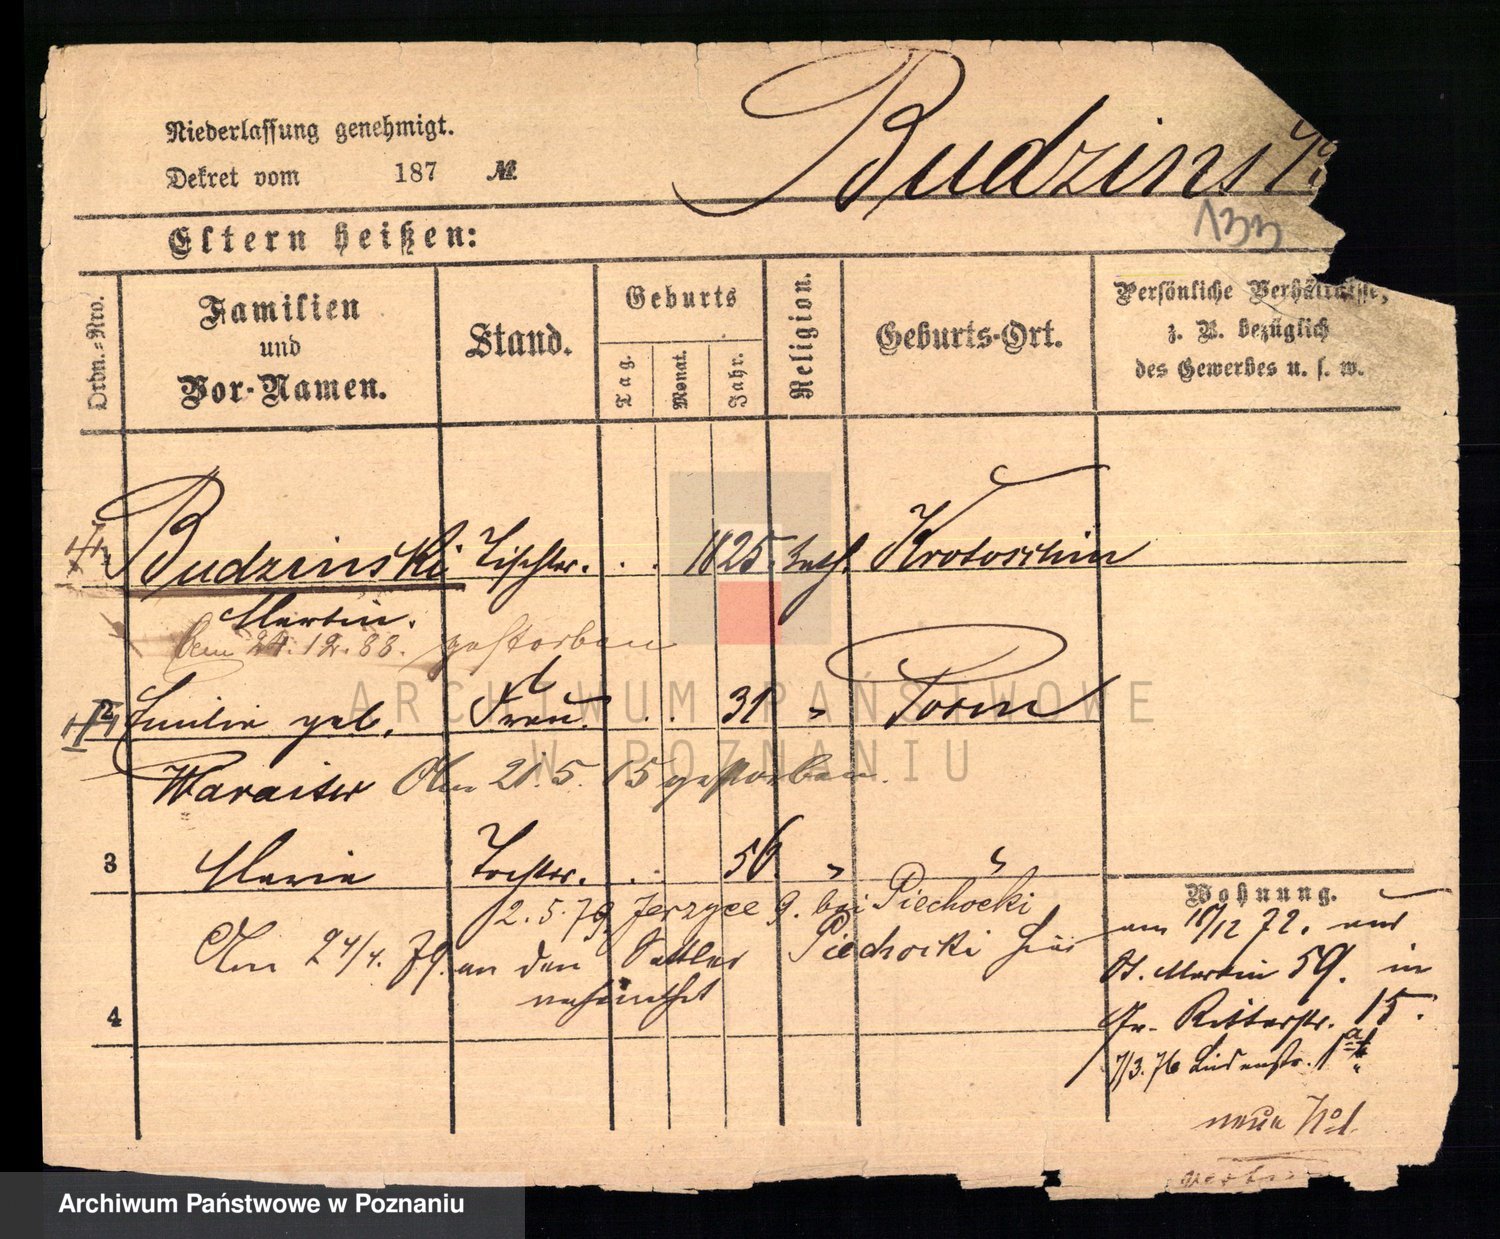 Budzinski
Niederlassung genehmigt.
Dekret vom 187 №
133
Eltern heißen:
Ordn.-Nro.
Familien
und
Vor-Namen.
Stand.
Geburts
Tag.
Monat.
Jahr.
Religion.
Geburts-Ort.
Persönliche Verhältnisse,
z. B. bezüglich
des Gewerbes u. s. w.
1 Budzinski Tischler. . . 1825. kath. Krotoschin
Martin.
Am 24.12.88. gestorben
2 Emilie geb. Frau . . 31 " Posen
Am 21.5.15 gestorben.
3 Marie Tochter. . . 56. " "
12.5.79. Jerzyce 9. bei Piechocki
Am 24/4. 79. an den Sattler Piechocki hier
verheirathet
4
Wohnung.
am 18/12 72. aus
St. Martin 59. in
Gr. Ritterstr. 15.
7/3.76 Lindenstr. 1
neue No 1.
ARCHIWUM PAŃSTWOWE
W POZNANIU
Archiwum Państwowe w Poznaniu